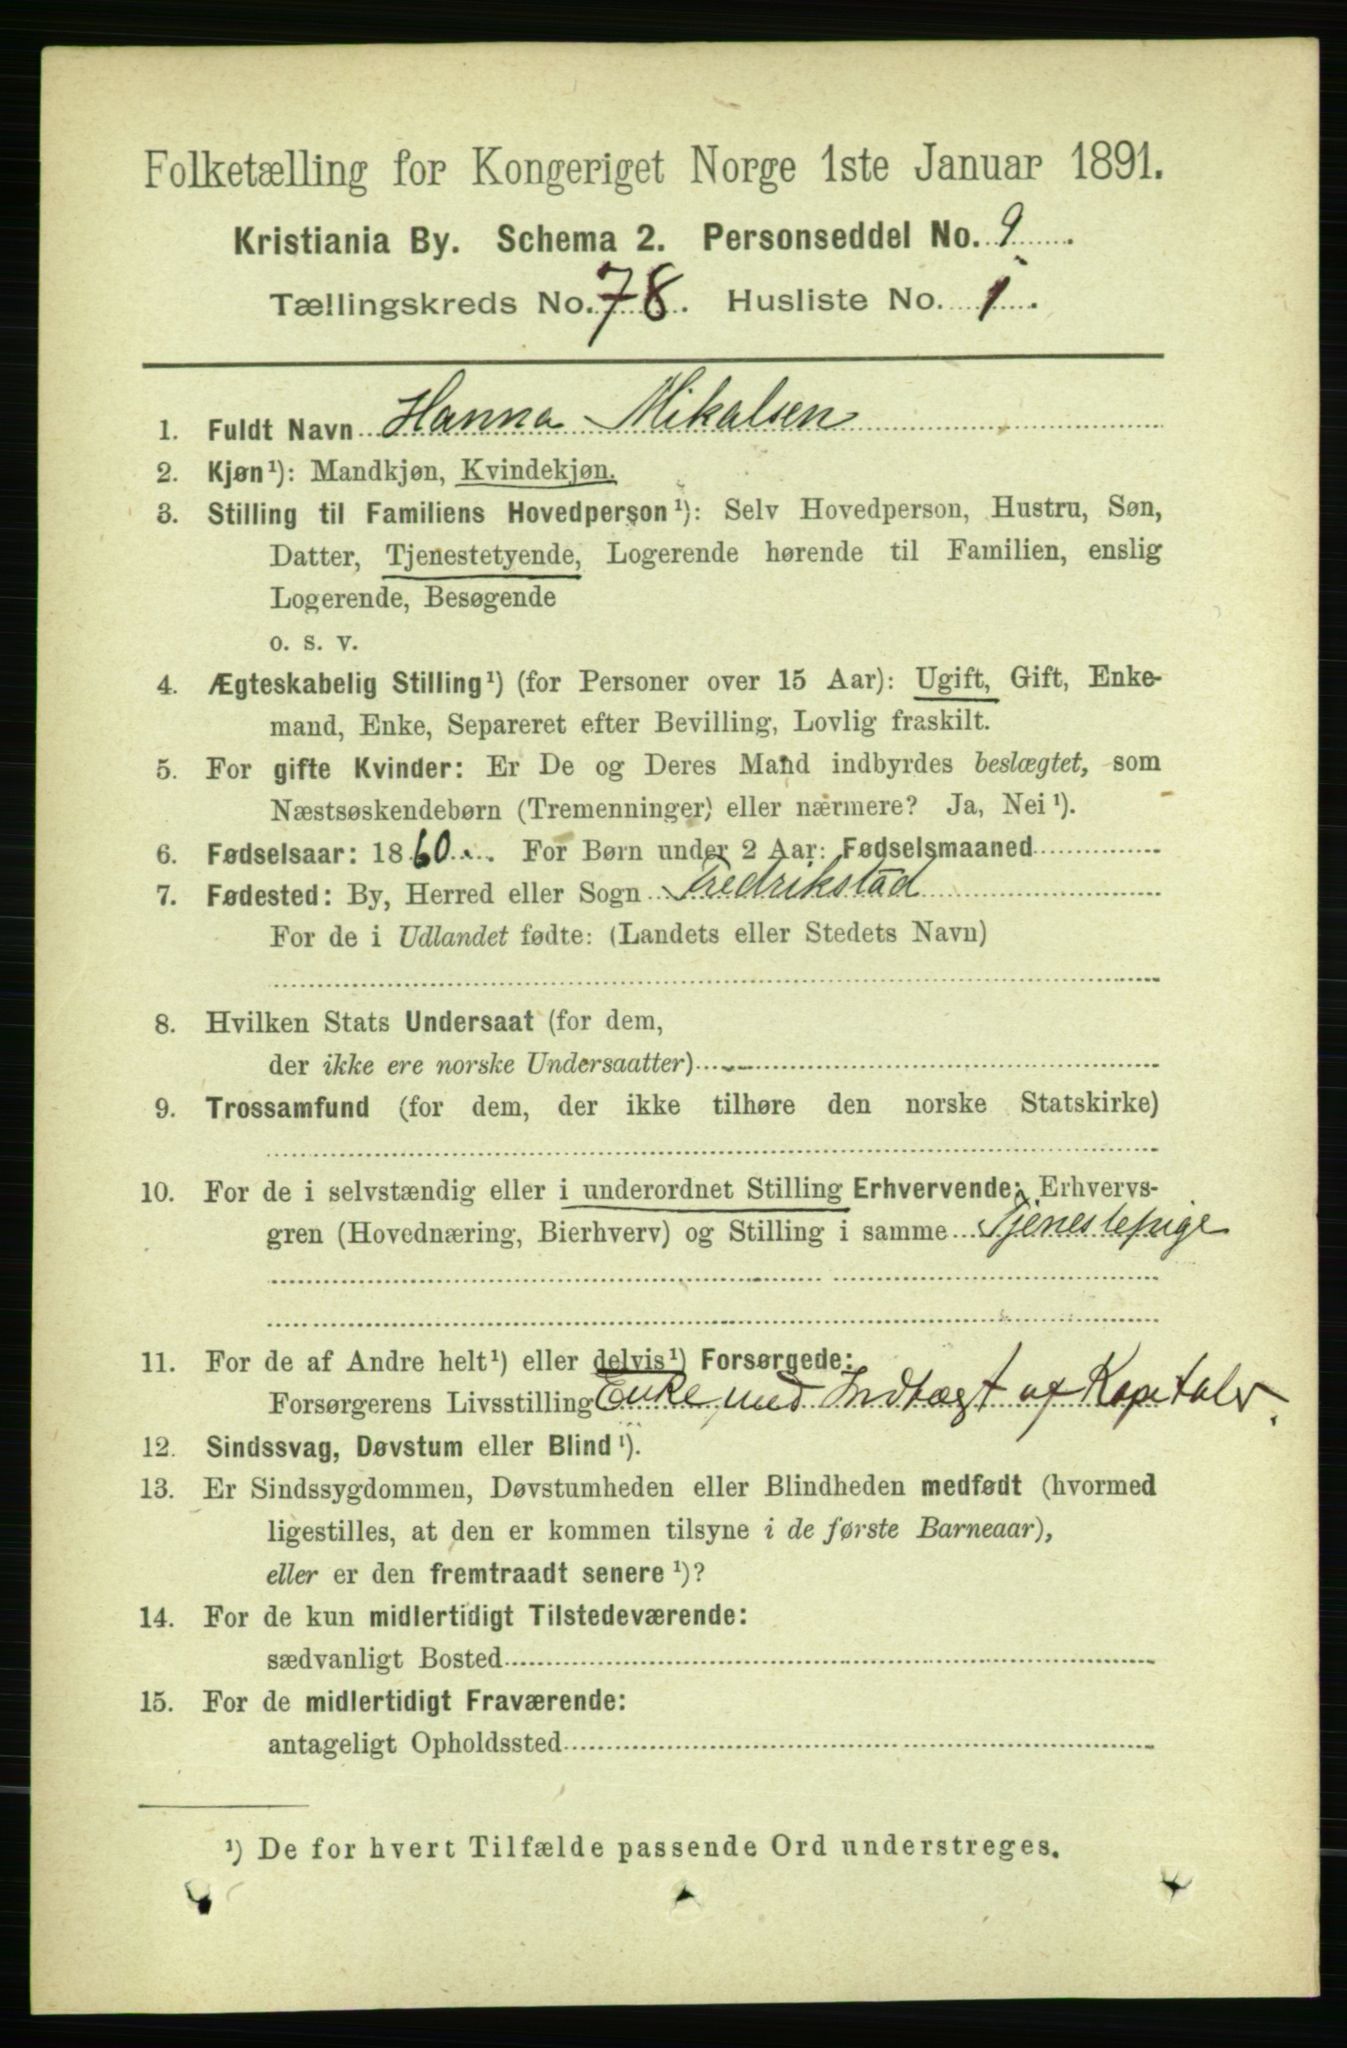 Folketælling for Kongeriget Norge 1ste Januar 1891.
Kristiania By. Schema 2. Personseddel No. 9.
Tællingskreds No. 78. Husliste No. 1.
1. Fuldt Navn Hanna Mikalsen
2. Kjøn¹): Mandkjøn, Kvindekjøn.
3. Stilling til Familiens Hovedperson¹): Selv Hovedperson, Hustru, Søn,
Datter, Tjenestetyende, Logerende hørende til Familien, enslig
Logerende, Besøgende
o. s. v.
4. Ægteskabelig Stilling¹) (for Personer over 15 Aar): Ugift, Gift, Enke-
mand, Enke, Separeret efter Bevilling, Lovlig fraskilt.
5. For gifte Kvinder: Er De og Deres Mand indbyrdes beslægtet, som
Næstsøskendebørn (Tremenninger) eller nærmere? Ja, Nei¹).
6. Fødselsaar: 1860. For Børn under 2 Aar: Fødselsmaaned
7. Fødested: By, Herred eller Sogn Fredrikstad
For de i Udlandet fødte: (Landets eller Stedets Navn)
8. Hvilken Stats Undersaat (for dem,
der ikke ere norske Undersaatter)
9. Trossamfund (for dem, der ikke tilhøre den norske Statskirke)
10. For de i selvstændig eller i underordnet Stilling Erhvervende: Erhvervs-
gren (Hovednæring, Bierhverv) og Stilling i samme Tjenestepige
11. For de af Andre helt¹) eller delvis¹) Forsørgede:
Forsørgerens Livsstilling Enke med Indtægt af Kapitaler.
12. Sindssvag, Døvstum eller Blind¹).
13. Er Sindssygdommen, Døvstumheden eller Blindheden medfødt (hvormed
ligestilles, at den er kommen tilsyne i de første Barneaar),
eller er den fremtraadt senere¹)?
14. For de kun midlertidigt Tilstedeværende:
sædvanligt Bosted
15. For de midlertidigt Fraværende:
antageligt Opholdssted
¹) De for hvert Tilfælde passende Ord understreges.